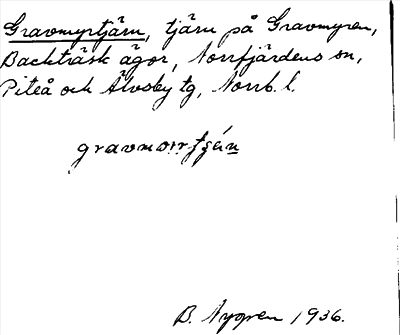 Gravmyrtjärn, tjärn på Gravmyren,
Backträsk ägor, Norrfjärdens sn,
Piteå och Älvsby tg, Norrb. l.
B. Nygren 1936.